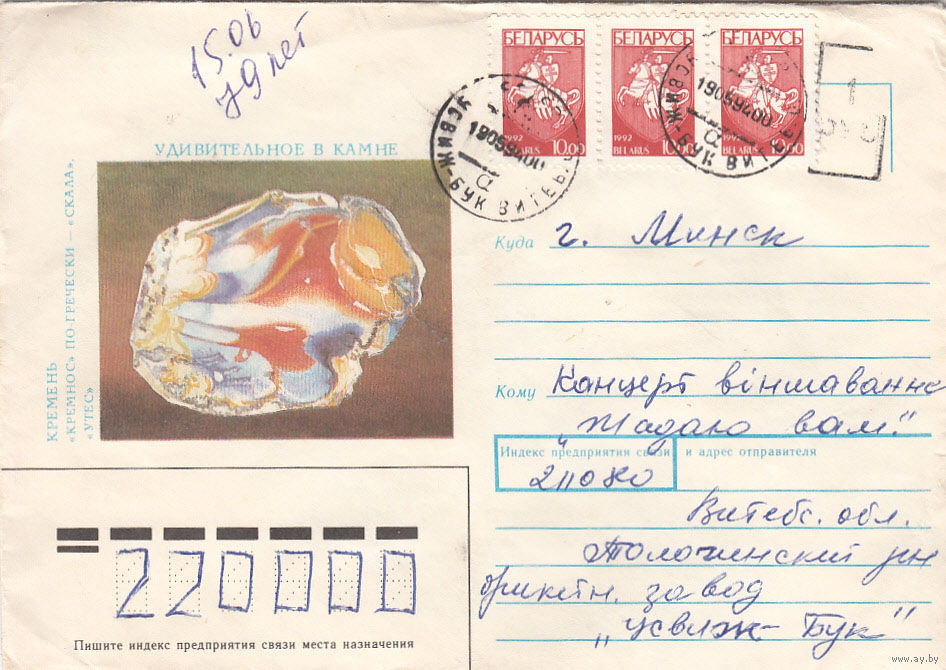 15.06
79 лет
БЕЛАРУСЬ БЕЛАРУСЬ БЕЛАРУСЬ
1992 1992 1992
BELARUS 10.00 BELARUS 10.00 BELARUS 10.00
19059400
УСВИЖ-БУК ВИТЕБ.
а
19059400
УСВИЖ-БУК ВИТЕБ.
а
УДИВИТЕЛЬНОЕ В КАМНЕ
КРЕМЕНЬ
«КРЕМНОС» ПО-ГРЕЧЕСКИ — «СКАЛА»,
«УТЕС»
Куда г. Минск
Кому Канцерт віншаванне
"Жадаю вам."
Индекс предприятия связи и адрес отправителя
211080
Витебс. обл.
Толочинский
брикетн. завод
"Усвиж-Бук"
220000
Пишите индекс предприятия связи места назначения
www.ay.by